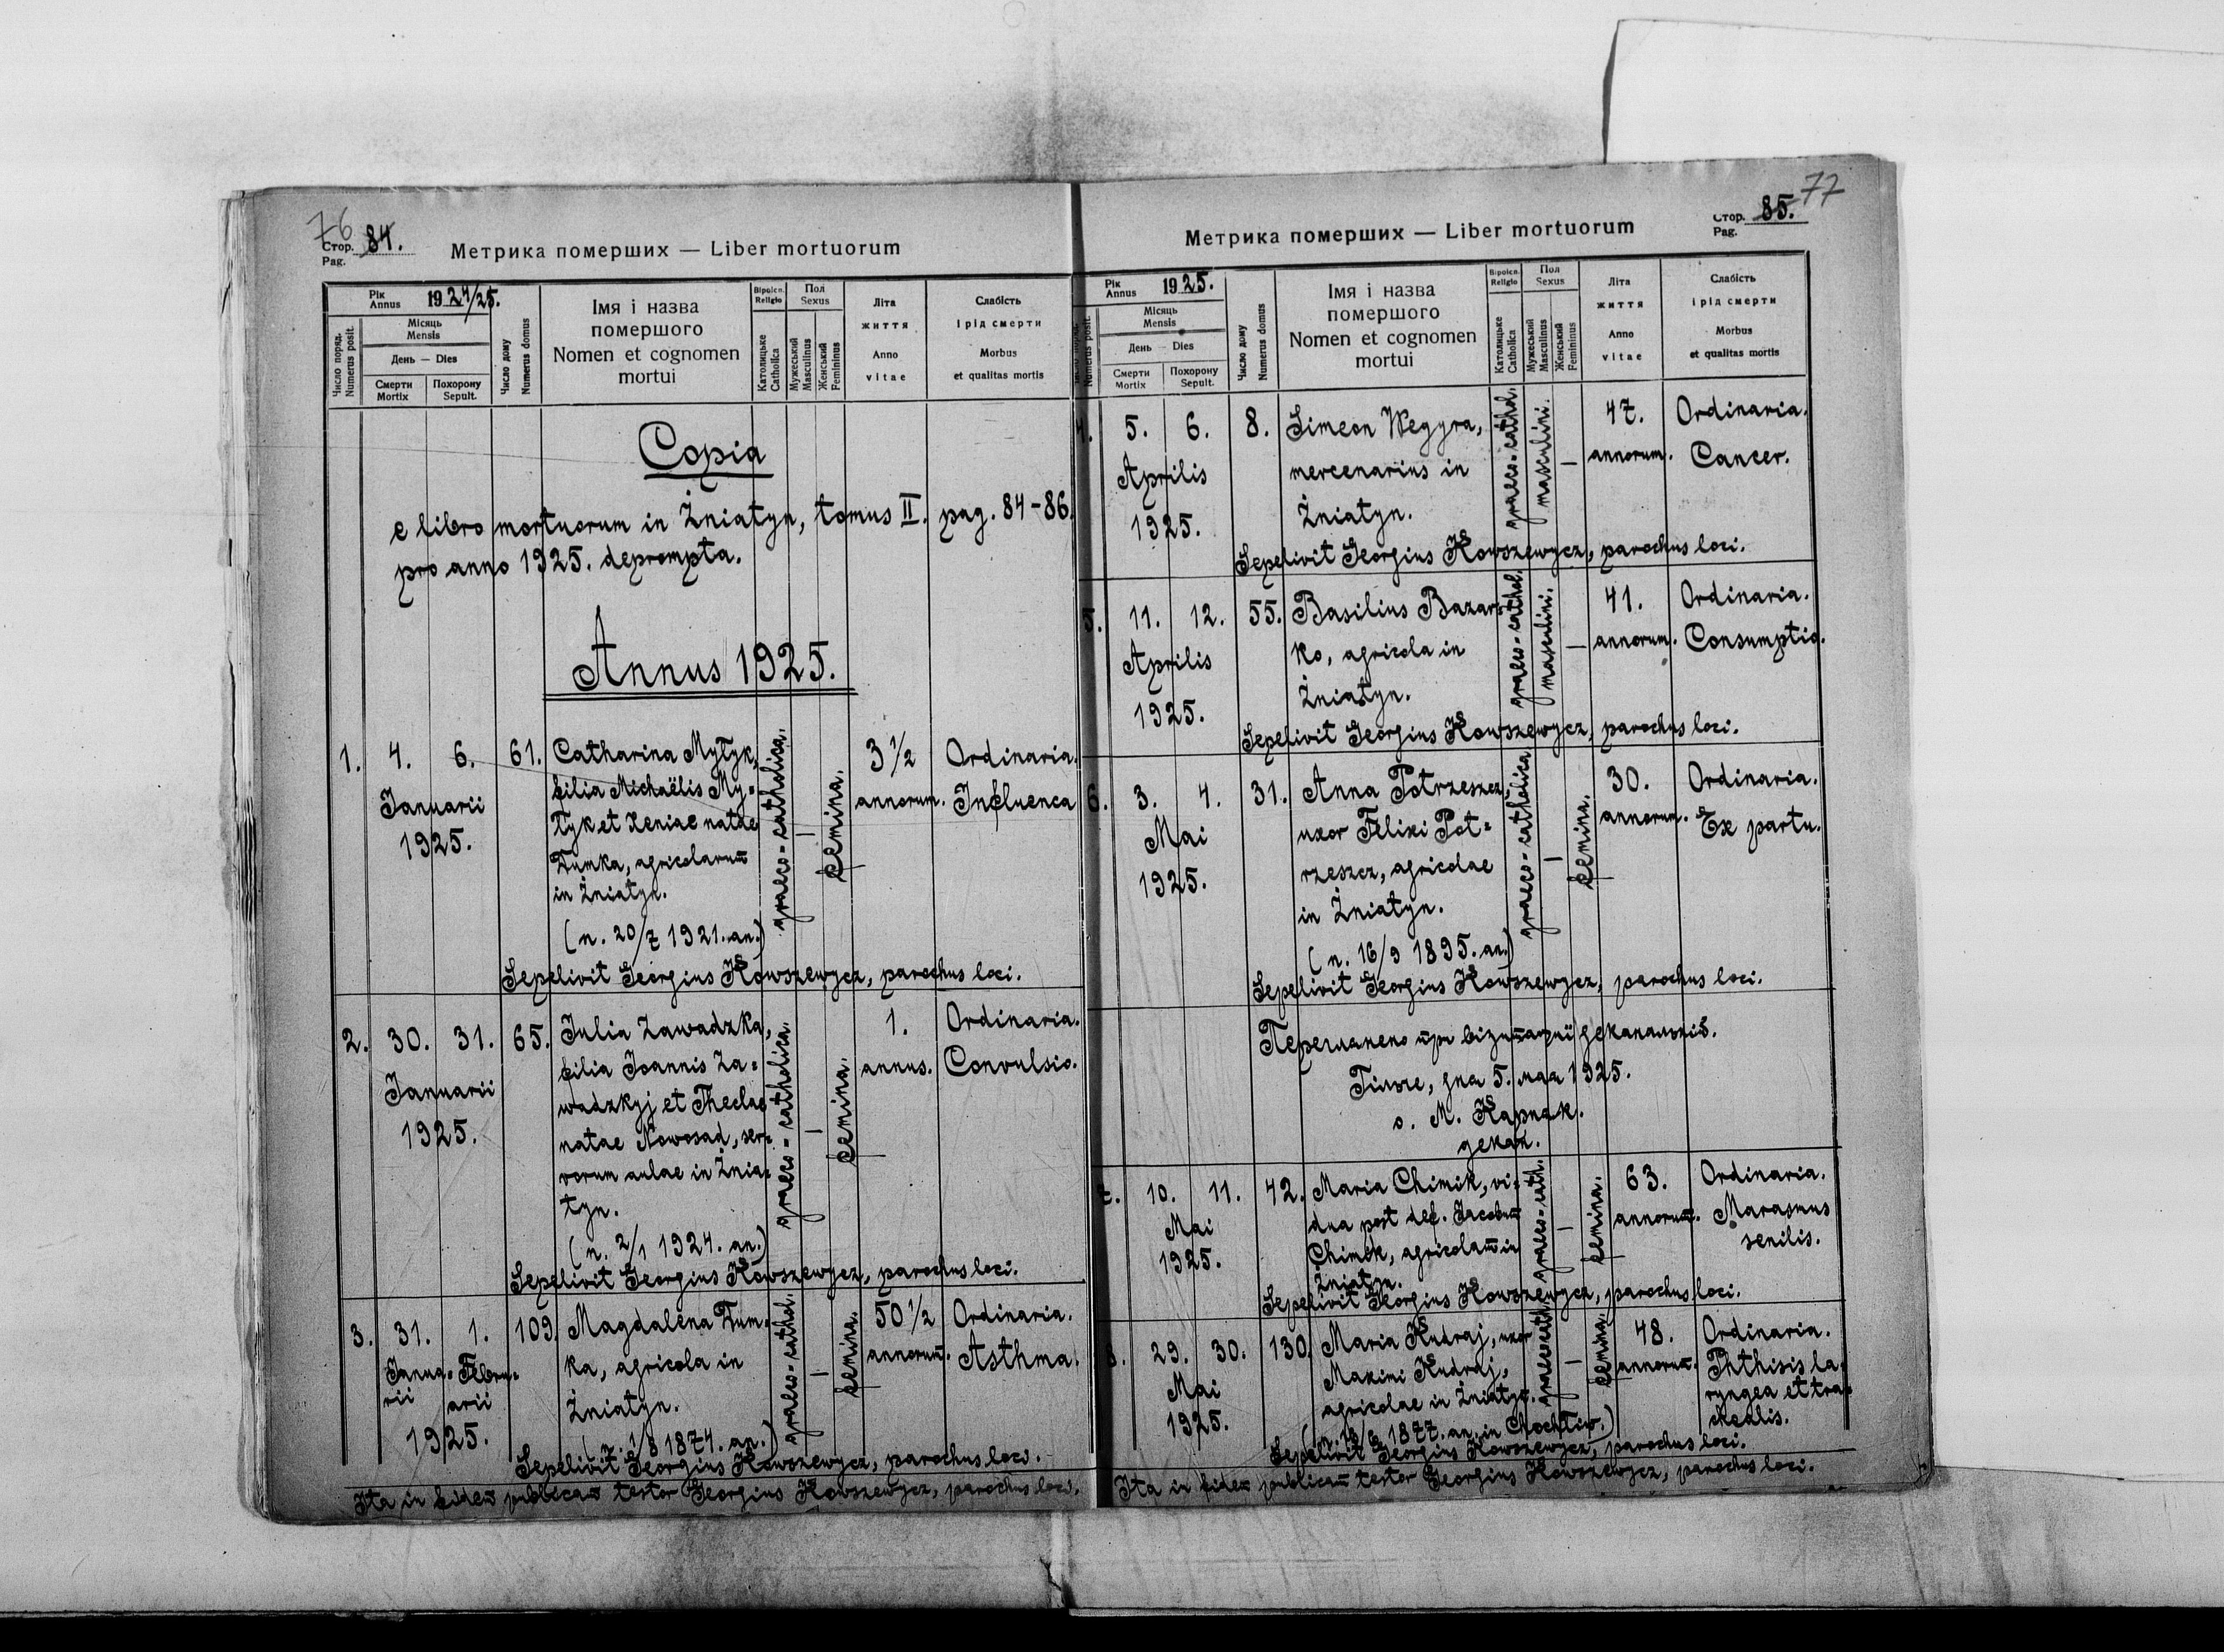 76
Стор. 84.
Pag.
Метрика померших — Liber mortuorum
Рік
Annus 1924/25.
Місяць
Mensis
День — Dies
Смерти
Mortix
Похорону
Sepult.
Число поряд.
Numerus posit.
Число дому
Numerus domus
Імя і назва
помершого
Nomen et cognomen
mortui
Віроісп.
Religio
Католицьке
Catholica
Пол
Sexus
Мужеський
Masculinus
Женський
Femininus
Літа
життя
Anno
vitae
Слабість
і рід смерти
Morbus
et qualitas mortis
Copia
e libro mortuorum in Żniatyn, tomus II. pag. 84-86.
pro anno 1925. deprompta.
Annus 1925.
1. 4. 6. 61.
Januarii
1925.
Catharina Mytyk,
filia Michaëlis My=
tyk et Xeniae natae
Dumka, agricolarum
in Żniatyn.
(n. 20/7 1921. an.)
graeco-catholica.
—
femina.
3 1/2
annorum.
Ordinaria.
Influenca
Sepelivit Georgius Kowszewycz, parochus loci.
2. 30. 31. 65.
Januarii
1925.
Julia Zawadzka,
filia Joannis Za=
wadzkyj et Theclae
natae Nowosad, ser=
vorum aulae in Żnia=
tyn.
(n. 2/1 1924. an.)
graeco-catholica.
—
femina.
1.
annus.
Ordinaria.
Convulsio.
Sepelivit Georgius Kowszewycz, parochus loci.
3. 31. 1. 109.
Janua= Febru=
rii arii
1925.
Magdalena Dum=
ka, agricola in
Żniatyn.
(n. 1/8 1874. an.)
graeco-cathol.
—
femina.
50 1/2
annorum.
Ordinaria.
Asthma.
Sepelivit Georgius Kowszewycz, parochus loci.
Ita in fidem publicam testor Georgius Kowszewycz, parochus loci.
77
Стор. 85.
Pag.
Метрика померших — Liber mortuorum
Рік
Annus 1925.
Місяць
Mensis
День — Dies
Смерти
Mortix
Похорону
Sepult.
Numerus posit.
Число дому
Numerus domus
Імя і назва
помершого
Nomen et cognomen
mortui
Віроісп.
Religio
Католицьке
Catholica
Пол
Sexus
Мужеський
Masculinus
Женський
Femininus
Літа
життя
Anno
vitae
Слабість
і рід смерти
Morbus
et qualitas mortis
4. 5. 6. 8.
Aprilis
1925.
Simeon Wegyra,
mercenarius in
Żniatyn.
graeco-cathol.
masculini.
—
47.
annorum.
Ordinaria.
Cancer.
Sepelivit Georgius Kowszewycz, parochus loci.
5. 11. 12. 55.
Aprilis
1925.
Basilius Bazar=
ko, agricola in
Żniatyn.
graeco-cathol.
masculini.
—
41.
annorum.
Ordinaria.
Consumptio.
Sepelivit Georgius Kowszewycz, parochus loci.
6. 3. 4. 31.
Mai
1925.
Anna Potrzeszcz,
uxor Felixi Pot=
rzeszcz, agricolae
in Żniatyn.
(n. 16/9 1895. an.)
graeco-catholica
—
femina.
30.
annorum.
Ordinaria.
Ex partu.
Sepelivit Georgius Kowszewycz, parochus loci.
при візитації деканальній.
дня 5. мая 1925.
о. М.
декан.
7. 10. 11. 42.
Mai
1925.
Maria Chimik, vi=
dua post def. Jacobum
Chimik, agricolam in
Żniatyn.
graeco-cath.
—
femina.
63.
annorum.
Ordinaria.
Marasmus
senilis.
Sepelivit Georgius Kowszewycz, parochus loci.
8. 29. 30. 130.
Mai
1925.
Maria Kudraj, uxor
Maximi Kudraj,
agricolae in Żniatyn.
1877. an. in Chochłiw.)
graeco-cath.
—
femina.
48.
annorum.
Ordinaria.
Phthisis la=
ryngea et tra=
chealis.
Sepelivit Georgius Kowszewycz, parochus loci.
Ita in fidem publicam testor Georgius Kowszewycz, parochus loci.